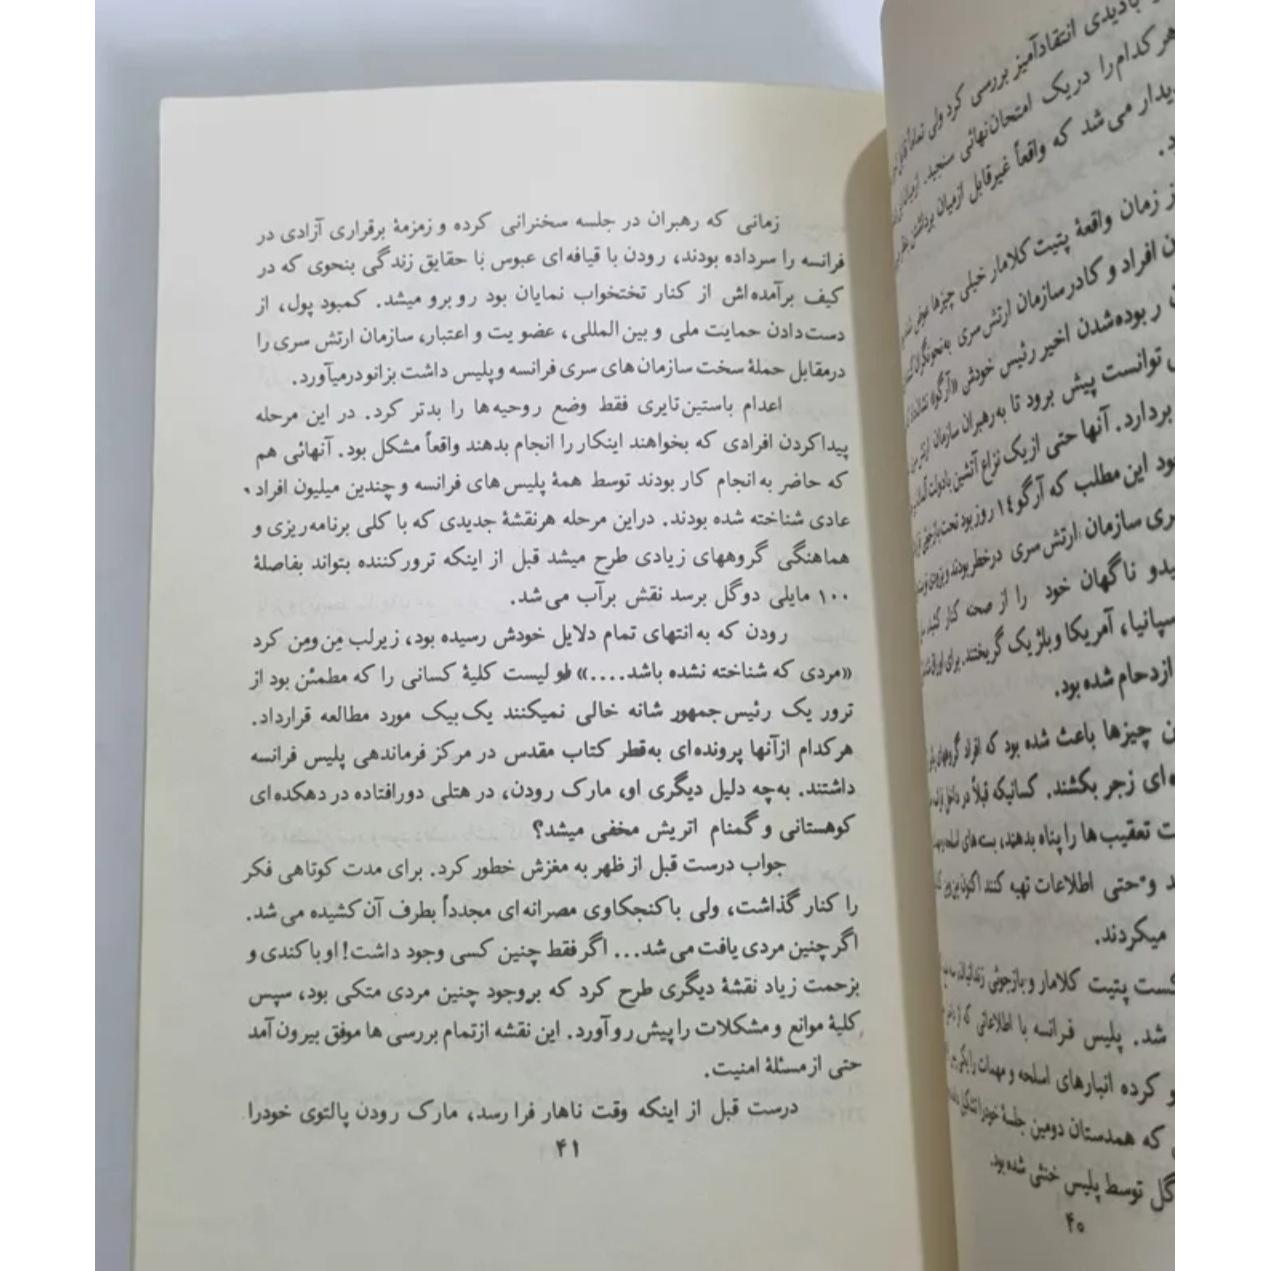 بادیدی انتقادآمیز بررسی کرد ولی تماماً
هرکدام را دریک امتحان نهائی سنجید. ازمیان
دیدار می‌شد که واقعاً غیرقابل ازمیان برداشتن
د.
ز زمان واقعهٔ پتیت کلامار خیلی چیزها عوض
ن افراد و کادرسازمان ارتش سری به
ربوده‌شدن اخیر رئیس خودش «آرگو»
توانست پیش برود تا به‌رهبران سازمان ارتش
بردارد. آنها حتی ازیک نزاع آتشین بادولت
ود این مطلب که آرگو ۱۴ روز بود تحت بازجوئی
ری سازمان ارتش سری درخطر بودند و بزودی
یدو ناگهان خود را از صحنه کنار کشید.
سپانیا، آمریکا وبلژیک گریختند. برای
ازدحام شده بود.
ن چیزها باعث شده بود که افراد گروههای
ه‌ای زجر بکشند. کسانیکه قبلاً در داخل
ت تعقیب‌ها را پناه بدهند، بسته‌های اسلحه
د و حتی اطلاعات تهیه کنند اکنون
میکردند.
کست پتیت کلامار و بازجوئی زندانیان،
شد. پلیس فرانسه با اطلاعاتی که از
و کرده انبارهای اسلحه و مهمات را یکی
که همدستان دومین جلسهٔ خود را تشکیل
گل توسط پلیس خنثی شده بود.
۴۰
زمانی که رهبران در جلسه سخنرانی کرده و زمزمهٔ برقراری آزادی در
فرانسه را سرداده بودند، رودن با قیافه‌ای عبوس با حقایق زندگی بنحوی که در
کیف برآمده‌اش از کنار تختخواب نمایان بود روبرو میشد. کمبود پول، از
دست‌دادن حمایت ملی و بین‌المللی، عضویت و اعتبار، سازمان ارتش سری را
درمقابل حملهٔ سخت سازمان‌های سری فرانسه وپلیس داشت بزانو درمیآورد.
اعدام باستین‌تایری فقط وضع روحیه‌ها را بدتر کرد. در این مرحله
پیداکردن افرادی که بخواهند اینکار را انجام بدهند واقعاً مشکل بود. آنهائی هم
که حاضر به‌انجام کار بودند توسط همهٔ پلیس‌های فرانسه و چندین میلیون افراد
عادی شناخته شده بودند. دراین مرحله هرنقشهٔ جدیدی که با کلی برنامه‌ریزی و
هماهنگی گروههای زیادی طرح میشد قبل از اینکه ترورکننده بتواند بفاصلهٔ
۱۰۰ مایلی دوگل برسد نقش برآب می‌شد.
رودن که به‌انتهای تمام دلایل خودش رسیده بود، زیرلب مِن‌ومِن کرد
«مردی که شناخته نشده باشد....» او لیست کلیهٔ کسانی را که مطمئن بود از
ترور یک رئیس‌جمهور شانه خالی نمیکنند یک‌بیک مورد مطالعه قرارداد.
هرکدام ازآنها پرونده‌ای به‌قطر کتاب مقدس در مرکز فرماندهی پلیس فرانسه
داشتند. به‌چه دلیل دیگری او، مارک رودن، در هتلی دورافتاده در دهکده‌ای
کوهستانی و گمنام اتریش مخفی میشد؟
جواب درست قبل از ظهر به مغزش خطور کرد. برای مدت کوتاهی فکر
را کنار گذاشت، ولی باکنجکاوی مصرانه‌ای مجدداً بطرف آن کشیده می‌شد.
اگر چنین مردی یافت می‌شد... اگر فقط چنین کسی وجود داشت! او با کندی و
بزحمت زیاد نقشهٔ دیگری طرح کرد که بروجود چنین مردی متکی بود، سپس
کلیهٔ موانع و مشکلات را پیش رو آورد. این نقشه ازتمام بررسی‌ها موفق بیرون آمد
حتی از مسئلهٔ امنیت.
درست قبل از اینکه وقت ناهار فرا رسد، مارک رودن پالتوی خودرا
۴۱